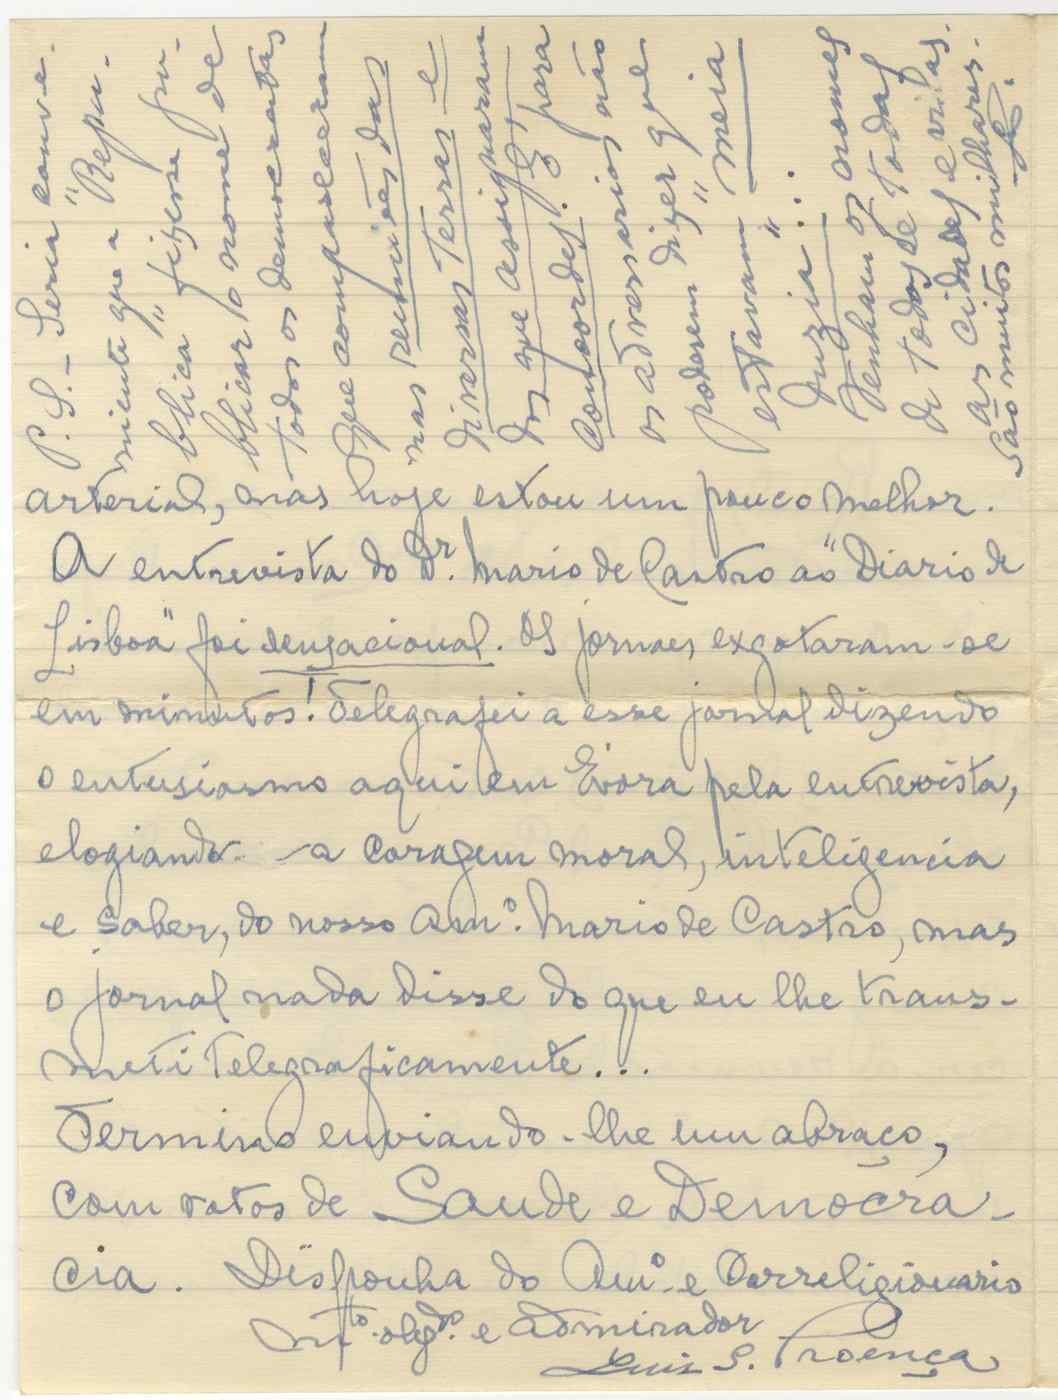 arterial, mas hoje estou um pouco melhor.
A entrevista do Dr. Mario de Castro ao "Diario de
Lisboa" foi sensacional. Os jornaes exgotaram-se
em minutos! Telegrafei a esse jornal dizendo
o entusiasmo aqui em Évora pela entrevista,
elogiando-a coragem moral, inteligencia
e saber, do nosso Amº. Mario de Castro, mas
o jornal nada disse do que eu lhe trans-
meti telegraficamente...
Termino enviando-lhe um abraço,
com votos de Saude e Democra-
cia. Disponha do Amº. e Correligionario
mto. obgdo. e admirador
Luis S. Proença
P.S. - Seria conve-
niente que a "Repu-
blica" fizesse pu-
blicar o nome de
todos os democratas
que compareceram
nas reuniões das
diversas Terras e
dos que assignaram
concordes. É para
os adversarios não
poderem dizer que
estavam "meia
duzia"...
Venham os nomes
de todos, de todas
as cidades e vilas.
São muitos milhares.